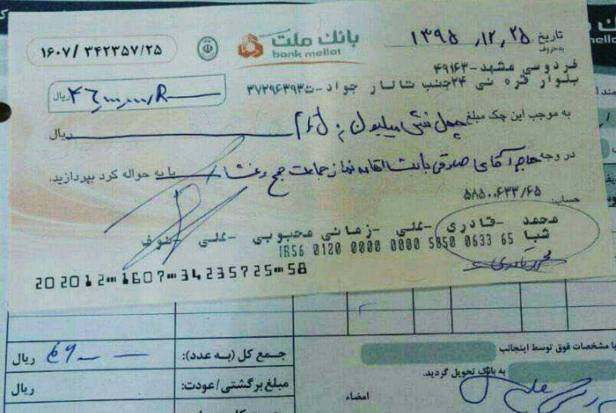 بانک ملت
bank mellat
۱۶۰۷/ ۳۴۲۳۵۷/۲۵
تاریخ ۱۳۹۵,۱۲,۲۵
بحروف
فردوسی مشهد-۴۹۱۶۳
بلوار قره نی ۲۴جنب تالار جواد-ت۳۷۲۹۶۳۹۳
ریال
به موجب این چک مبلغ چهل شش میلیون ریال
ریال
در وجه حاج آقای صادقی بابت اقامه نماز جماعت صبح و عشا
یا به حواله کرد بپردازید.
حساب: ۵۸۵۰۰۶۳۳/۶۵
محمد -قادری -علی -زمانی محبوبی -علی -نوف
شبا IR56 0120 0000 0000 5850 0633 65
202012 1607 34235725 58
جمع کل (به عدد):
ریال
مبلغ برگشتی/عودت:
ریال
با مشخصات فوق توسط اینجانب
به بانک تحویل گردید.
امضاء